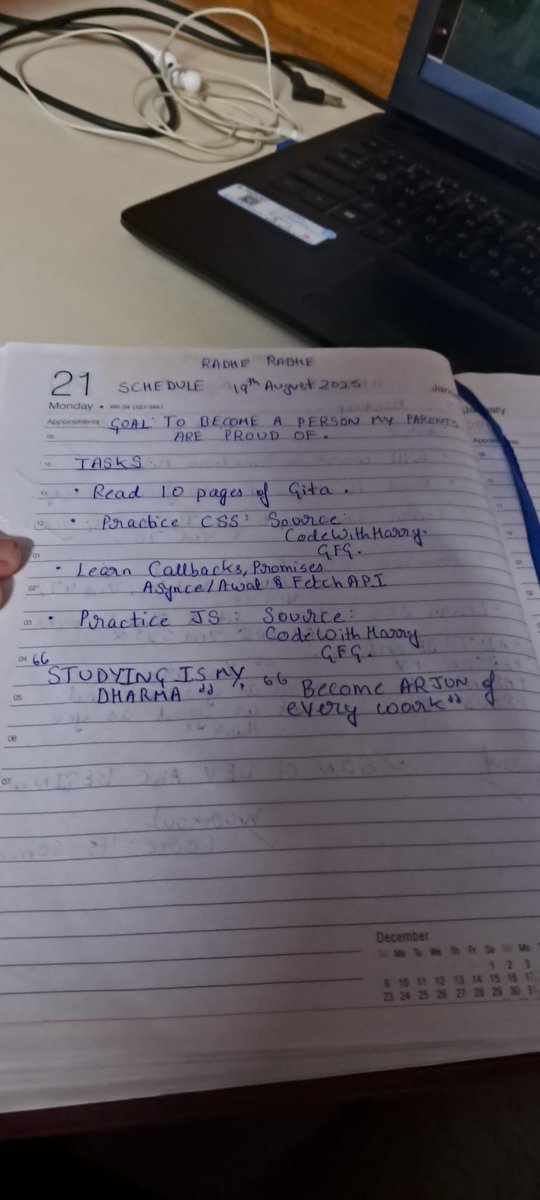 RADHE RADHE
21 SCHEDULE 19th August 2025
Monday • WK 04 (021-344)
Appointments GOAL: TO BECOME A PERSON MY PARENTS
09 ARE PROUD OF.
10 TASKS
11 • Read 10 pages of Gita.
12 • Practice CSS: Source:
CodeWithHarry.
01 GFG.
• Learn Callbacks, Promises
02 Asynce/Awat & Fetch API
03 • Practice JS: Source:
CodeWithHarry
04 GFG.
“STUDYING IS MY
05 DHARMA”. “Become ARJUN of
every work”
06
07
December
Su Mo Tu We Th Fr Sa Su Mo
1 2 3
9 10 11 12 13 14 15 16 17
23 24 25 26 27 28 29 30 31
January